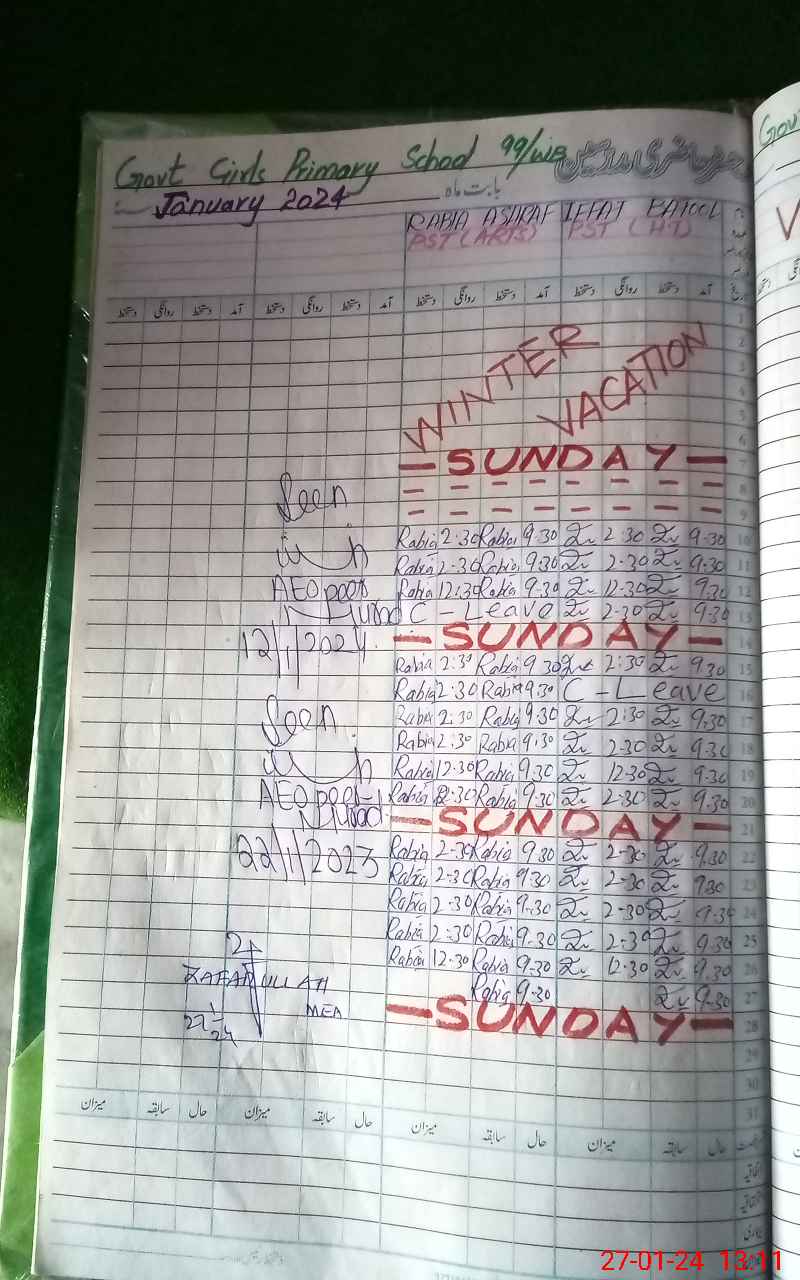 Govt Girls Primary School 99/WB حاضری مدرسین
January 2024 بابت ماہ
RABIA ASHRAF IFFAT BATOOL
PST (ARTS) PST (HT)
دستخط روانگی دستخط آمد دستخط روانگی دستخط آمد دستخط روانگی دستخط آمد دستخط روانگی دستخط آمد
1
WINTER 2
3
VACATION 4
5
6
— SUNDAY — 7
Seen 8
9
Rabia 2:30 Rabia 9:30 2:30 9:30 10
Rabia 2-30 Rabia 9:30 2-30 9:30 11
AEO Rabia 12:30 Rabia 9:30 12-30 9:30 12
C-Leave 2-30 9:30 13
12/1/2024 — SUNDAY — 14
Rabia 2:30 Rabia 9:30 2:30 9:30 15
Rabia 2:30 Rabia 9:30 C-Leave 16
Seen Rabia 2:30 Rabia 9:30 2:30 9:30 17
Rabia 2:30 Rabia 9:30 2-30 9:30 18
Rabia 12:30 Rabia 9:30 12-30 9:30 19
AEO Rabia 2:30 Rabia 9:30 2-30 9:30 20
— SUNDAY — 21
22/1/2023 Rabia 2-30 Rabia 9:30 2-30 9:30 22
Rabia 2-30 Rabia 9:30 2-30 930 23
Rabia 2-30 Rabia 9-30 2-30 9-30 24
Rabia 2:30 Rabia 9-30 2-30 9:30 25
ZAFARULLAH Rabia 12:30 Rabia 9:30 12:30 9:30 26
MEA Rabia 9:30 9-30 27
27/1/24 — SUNDAY — 28
29
30
31
میزان سابقہ حال میزان سابقہ حال میزان سابقہ حال میزان سابقہ حال
27-01-24 13:11